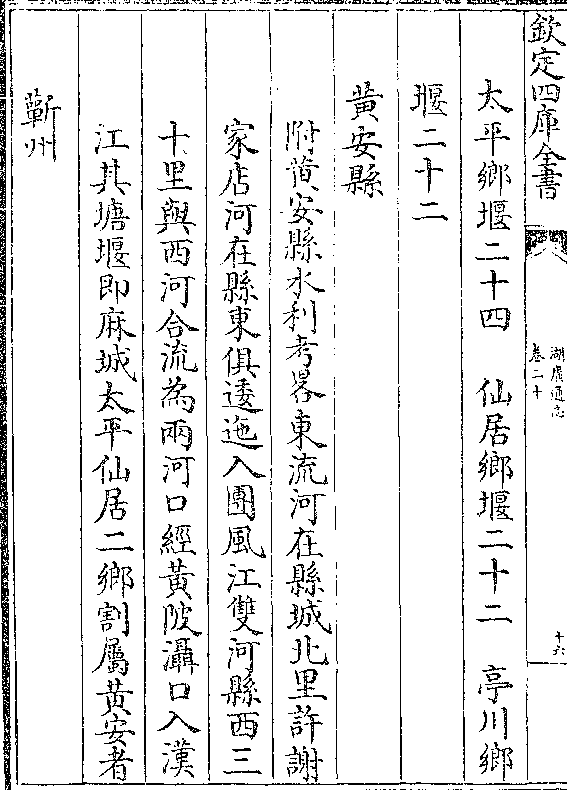 欽定四庫全書
湖廣通志
卷二十
十六
太平鄉堰二十四　仙居鄉堰二十二　亭川鄉
堰二十二
黃安縣
附黃安縣水利考畧東流河在縣城北里許謝
家店河在縣東俱逶迤入團風江雙河縣西三
十里與西河合流為兩河口經黃陂灄口入漢
江其塘堰即麻城太平仙居二鄉割屬黃安者
蘄州